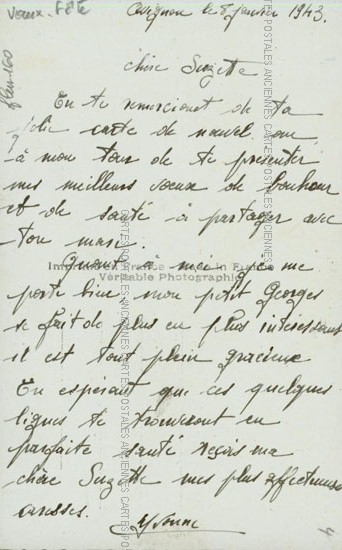 Voeux. Fête
Avignon le 8 janvier 1943.
chère Suzette
En te remerciant de ta
jolie carte de nouvel an,
à mon tour de te présenter
mes meilleurs voeux de bonheur
et de santé à partager avec
ton mari.
Quant à moi je me
porte bien mon petit Georges
se fait de plus en plus intéressant
il est tout plein gracieux
En espérant que ces quelques
lignes te trouveront en
parfaite santé reçois ma
chère Suzette mes plus affectueuses
caresses.
Yvonne
Imprimé en France
Véritable Photographie
CARTES POSTALES ANCIENNES CARTES POSTALES ANCIENNES CARTES POSTALES ANCIENNES